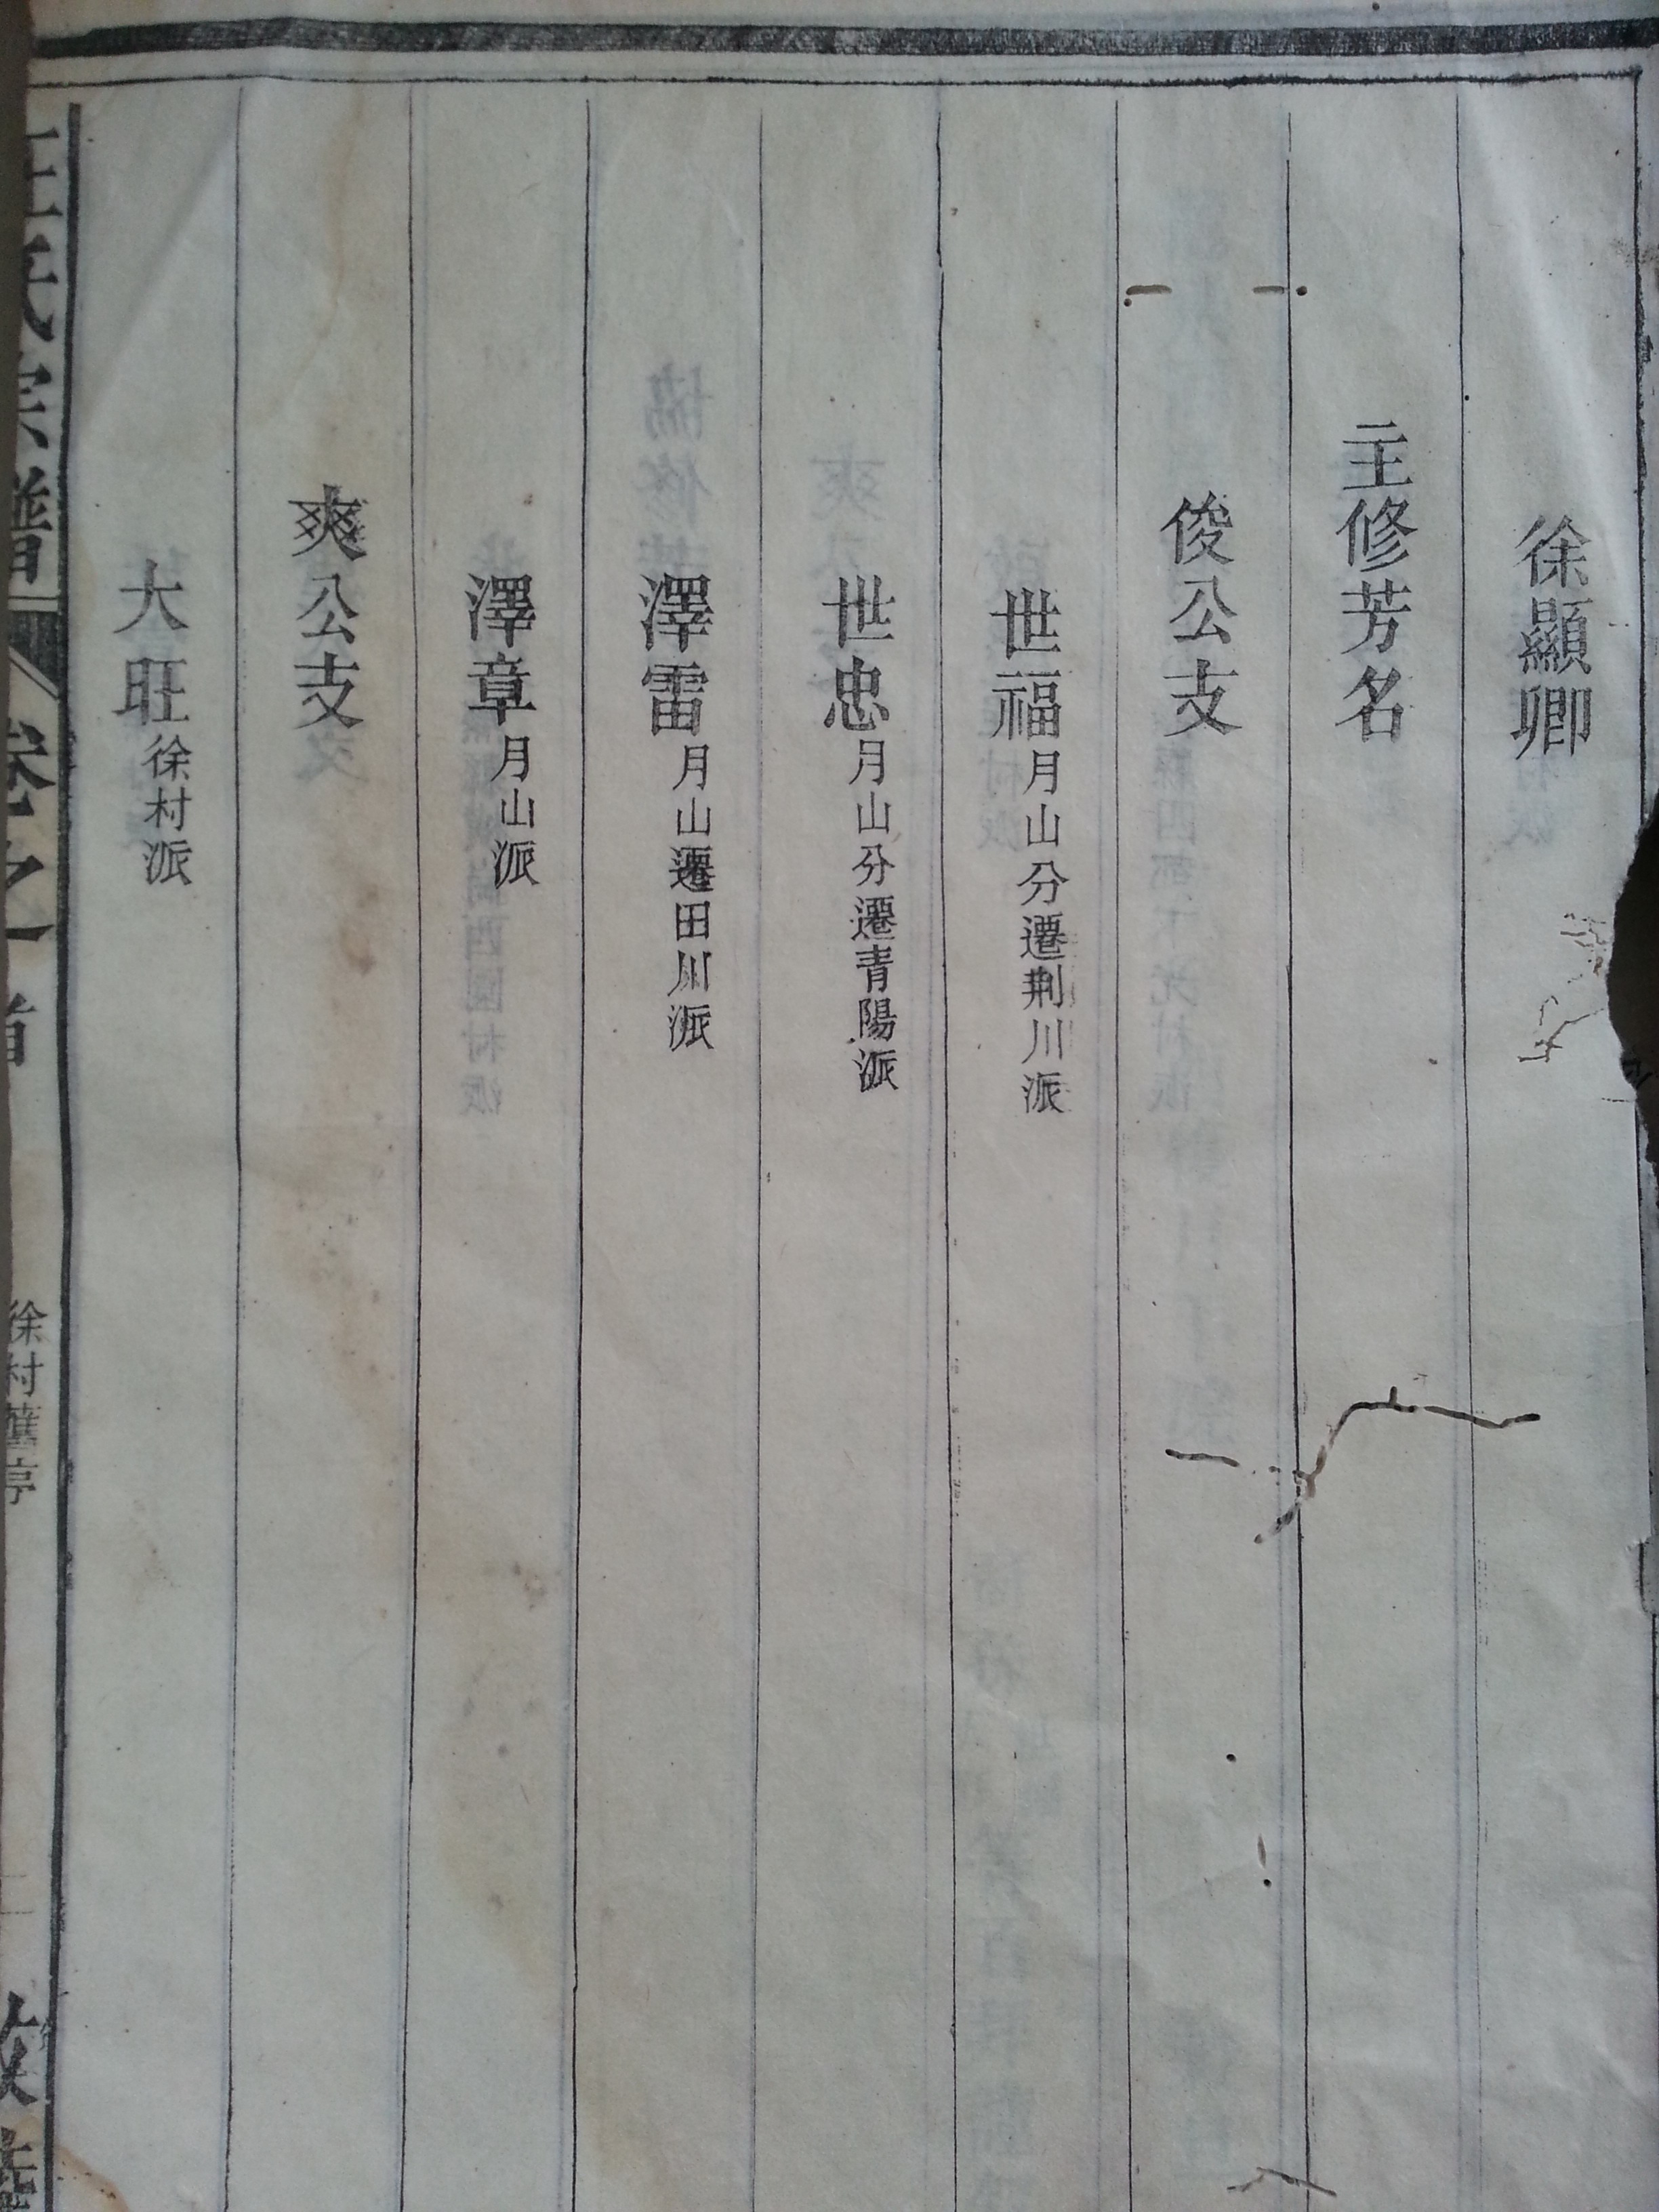 徐顯卿
主修芳名
俊公支
世福月山分遷荆川派
世忠月山分遷青陽派
澤雷月山遷田川派
澤章月山派
爽公支
大旺徐村派
氏宗譜 卷之首 徐村舊亭